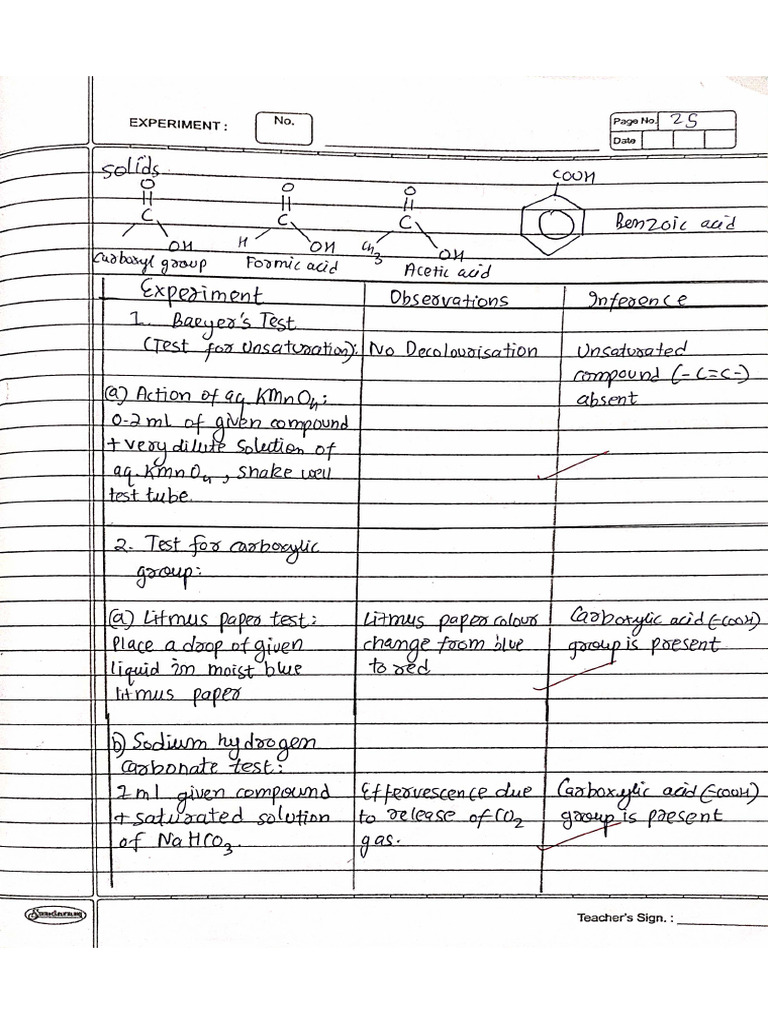 EXPERIMENT :
No.
Page No. 25
Date
Solids
O
C
OH
Carboxyl group
O
C
H
OH
Formic acid
O
C
CH3
OH
Acetic acid
COOH
Benzoic acid
Experiment
Observations
Inference
1. Baeyer's Test
(Test for Unsaturation):
No Decolourisation
Unsaturated
compound (-C=C-)
absent
(a) Action of aq. KMnO4:
0.2 ml of given compound
+ very dilute solution of
aq. KMnO4, shake well
test tube.
2. Test for carboxylic
group:
(a) Litmus paper test:
Place a drop of given
liquid in moist blue
litmus paper
Litmus paper colour
change from blue
to red
Carboxylic acid (-COOH)
group is present
b) Sodium hydrogen
carbonate test:
1 ml given compound
+ saturated solution
of NaHCO3.
Effervescence due
to release of CO2
gas.
Carboxylic acid (-COOH)
group is present
Sundaram
Teacher's Sign. :